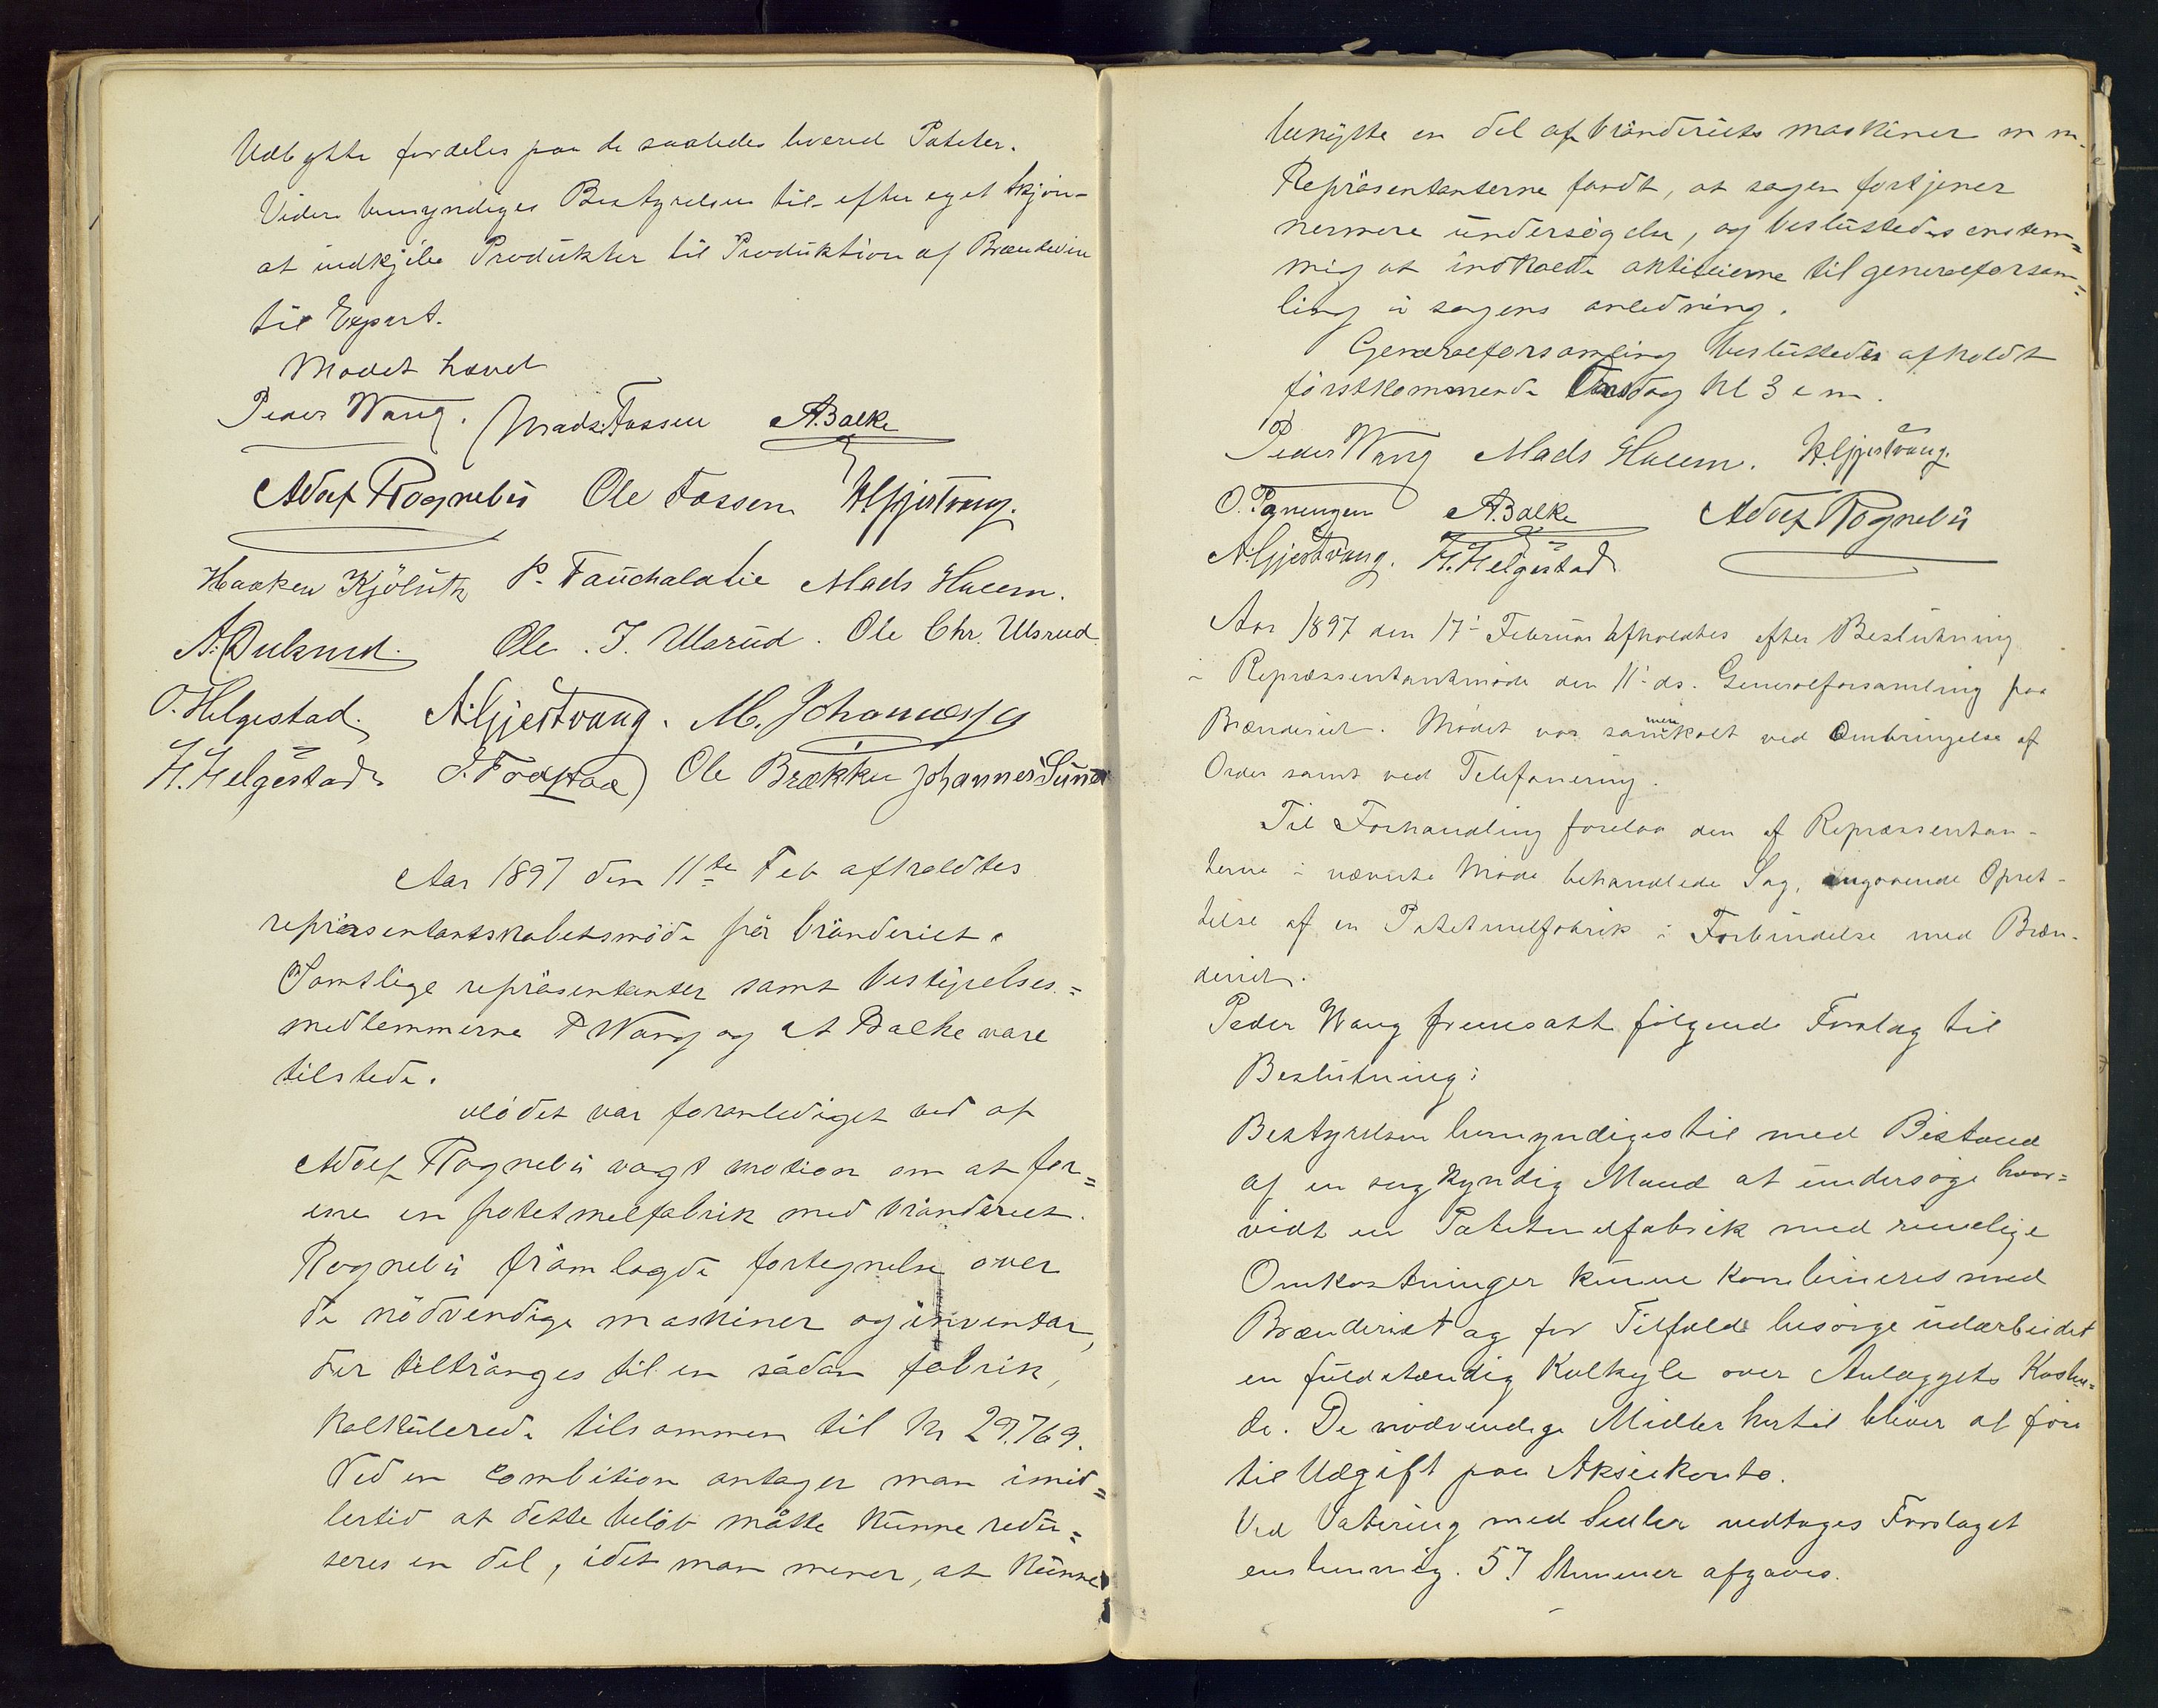 Udbytte fordeles paa de saaledes levered Poteter.
Videre bemyndiges Bestyrelsen til efter eget skjøn-
at indkjøbe Produkter til Produktion af Brændevin
til Export.
Mødet hævet
Peder Wang. Mads Fossen A. Balke
Adolf Rognebü Ole Fossen H. Gjestvang.
Haaken Kjölüth P. Fauchaldlie Mads Hveem.
Ole. J. Ulsrüd. Ole Chr. Ulsrud
O. Helgestad. A. Gjestvang. M. Johannessen
H. Helgestad Ole Brækku Johannes Sund
Aar 1897 den 11te Feb afholdtes
repräsentantskabetsmöde på bränderiet.
Samtlige repräsentanter samt bestyrelses=
medlemmerne P Wang og At Balke vare
tilstede.
Mödet var foranlediget ved af
Adolf Rognebü vagt motion om at for=
ene en potetmelfabrik med bränderiet.
Rognebü främlagde fortegnelse over
de nödvendige maskiner og inventar,
der tiltränges til en sådan fabrik,
kalkülerede tilsammen til kr 29.769.
Ved en combition antager man imid=
lertid at dette belöb måtte künne redü=
seres en del, idet man mener, at künne
benytte en del af bränderiets maskiner m m.
Repräsentanterne fandt, at sagen fortjener
nermere ündersögelse, og beslüttedes enstem=
mig at indkalde aktieeierne til generalforsam=
ling i sagens anledning.
Generalforsamling beslüttedes afholdt
förstkommende Onsdag kl 3 e m.
Peder Wang Mads Hveem. H. Gjestvang.
A. Balke Adolf Rognebü
A. Gjestvang. H. Helgestad
Aar 1897 den 17' Februar afholdtes efter Beslutning
i Repræssentantmøde den 11' ds. Generalforsamling paa
Brænderiet. Mødet var sammenkalt ved Ombringelse af
Order samt ved Telefonering.
Til Forhandling forelaa den af Repræssentan-
terne i nævnte Møde behandlede Sag, angaaende Opret-
telse af en Potetmelfabrik i Forbindelse med Bræn-
deriet.
Peder Wang fremsatte følgende Forslag til
Beslutning:
Bestyrelsen bemyndiges til med Bistand
af en sagkyndig Mand at undersøge hvor=
vidt en Potetmelfabrik med rimelige
Omkostninger kunne kombineres med
Brænderiet og for Tilfælde besørge udarbeidet
en fuldstændig Kalkyle over Anlæggets Kosten=
de. De nødvendige Midler hertil bliver at føre
til Udgift paa Aksiekonto.
Ved Votering med Sedler vedtoges Forslaget
enstemmig. 57 Stemmer afgaves.